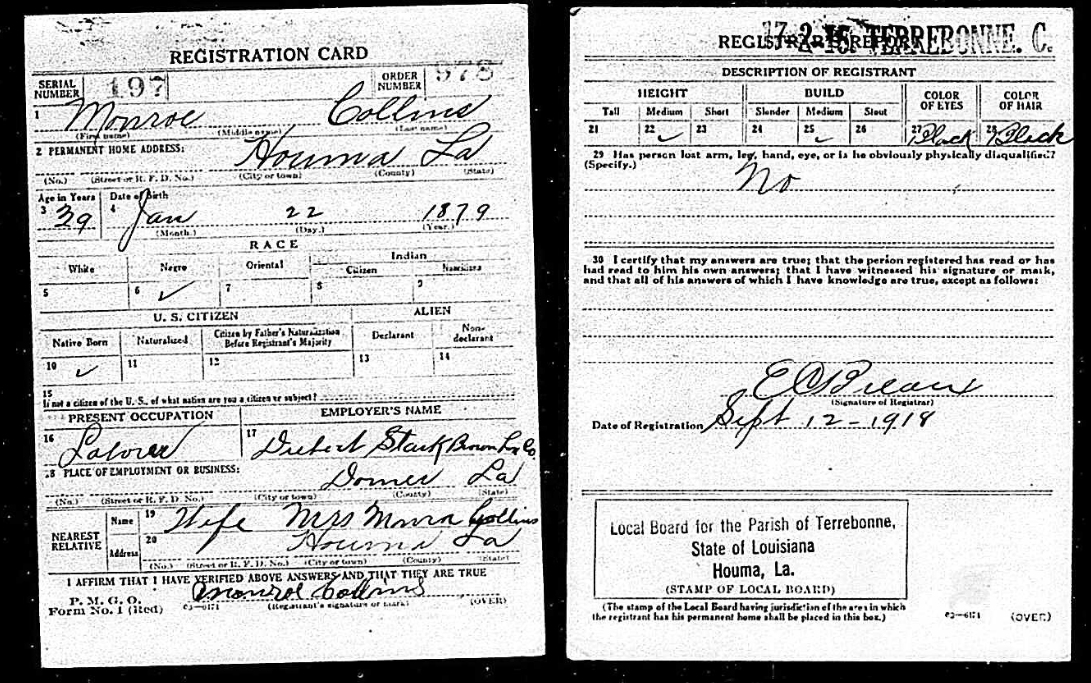 REGISTRATION CARD
SERIAL NUMBER 197 ORDER NUMBER 978
1 Monroe Collins
(First name) (Middle name) (Last name)
2 PERMANENT HOME ADDRESS: Houma La
(No.) (Street or R. F. D. No.) (City or town) (County) (State)
Age in Years Date of Birth
3 39 4 Jan 22 1879
(Month.) (Day.) (Year.)
RACE
White Negro Oriental Indian
Citizen Noncitizen
5 6 ✓ 7 8 9
U. S. CITIZEN ALIEN
Native Born Naturalized Citizen by Father's Naturalization Before Registrant's Majority Declarant Non-declarant
10 ✓ 11 12 13 14
15
If not a citizen of the U. S., of what nation are you a citizen or subject?
PRESENT OCCUPATION EMPLOYER'S NAME
16 Laborer 17 Dibert Stark Brown Co.
18 PLACE OF EMPLOYMENT OR BUSINESS: Donner La
(No.) (Street or R. F. D. No.) (City or town) (County) (State)
NEAREST RELATIVE Name 19 Wife Mrs Collins
Address 20 Houma La
(No.) (Street or R. F. D. No.) (City or town) (County) (State)
I AFFIRM THAT I HAVE VERIFIED ABOVE ANSWERS AND THAT THEY ARE TRUE
P. M. G. O.
Form No. 1 (Red) 03-6171 Monroe Collins
(Registrant's signature or mark) (OVER)
REGISTRAR'S REPORT TERREBONNE. C.
DESCRIPTION OF REGISTRANT
HEIGHT BUILD COLOR OF EYES COLOR OF HAIR
Tall Medium Short Slender Medium Stout
21 22 ✓ 23 24 25 ✓ 26 27 Black 28 Black
29 Has person lost arm, leg, hand, eye, or is he obviously physically disqualified?
(Specify.) No
30 I certify that my answers are true; that the person registered has read or has
had read to him his own answers; that I have witnessed his signature or mark,
and that all of his answers of which I have knowledge are true, except as follows:
E C
(Signature of Registrar)
Date of Registration Sept 12 - 1918
Local Board for the Parish of Terrebonne,
State of Louisiana
Houma, La.
(STAMP OF LOCAL BOARD)
(The stamp of the Local Board having jurisdiction of the area in which
the registrant has his permanent home shall be placed in this box.)
03-6171 (OVER)